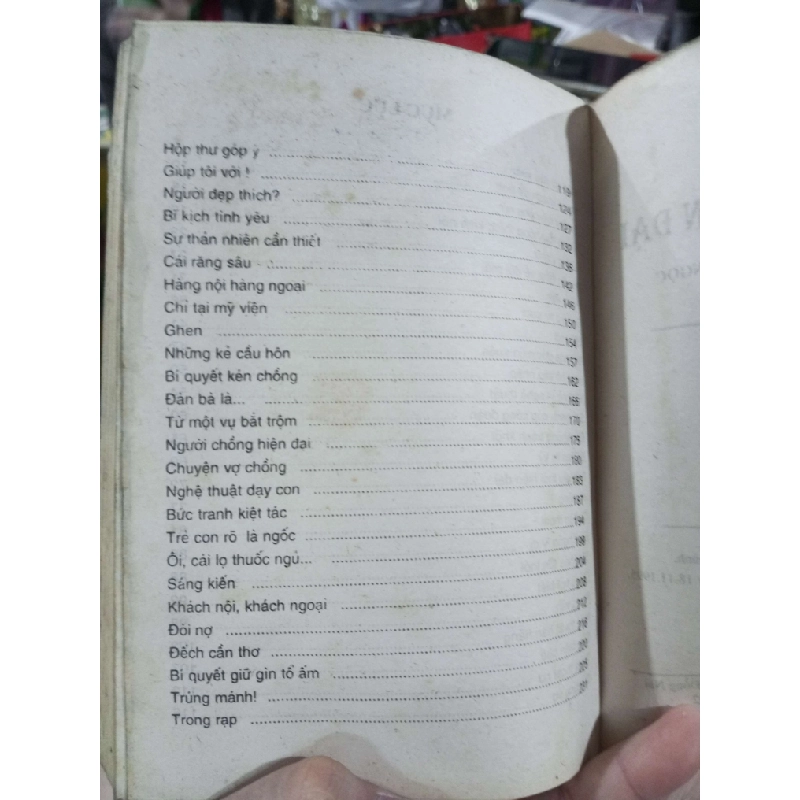 Hộp thư góp ý ........ 119
Giúp tôi với ! ........ 124
Người đẹp thích? ........ 127
Bi kịch tình yêu ........ 132
Sự thản nhiên cần thiết ........ 136
Cái răng sâu ........ 142
Hàng nội hàng ngoại ........ 146
Chỉ tại mỹ viện ........ 150
Ghen ........ 154
Những kẻ cầu hôn ........ 157
Bí quyết kén chồng ........ 162
Đàn bà là... ........ 166
Từ một vụ bắt trộm ........ 170
Người chồng hiện đại ........ 175
Chuyện vợ chồng ........ 180
Nghệ thuật dạy con ........ 183
Bức tranh kiệt tác ........ 187
Trẻ con rõ là ngốc ........ 194
Ôi, cái lọ thuốc ngủ... ........ 199
Sáng kiến ........ 204
Khách nội, khách ngoại ........ 208
Đòi nợ ........ 212
Đếch cần thơ ........ 216
Bí quyết giữ gìn tổ ấm ........ 220
Trúng mánh! ........ 225
Trong rạp ........ 231